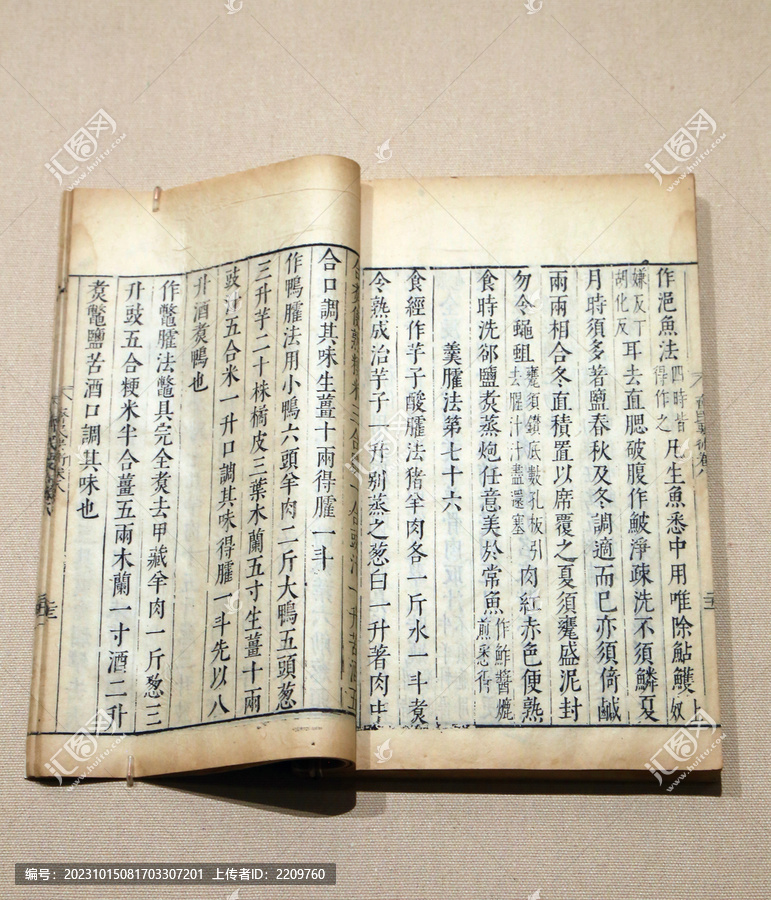 作浥魚法四時皆得作之凡生魚悉中用唯除鮎鱯上奴
嫌反丁胡化反耳去直腮破腹作鮍淨疎洗不須鱗夏
月時須多著鹽春秋及冬調適而已亦須倚鹹
兩兩相合冬直積置以席覆之夏須甕盛泥封
勿令蠅蛆甕須鑽底數孔板引去腥汁汁盡還塞肉紅赤色便熟
食時洗郤鹽煑蒸炮任意美於常魚作鮓醬爊煎悉得
羮臛法第七十六
食經作芋子酸臛法猪羊肉各一斤水一斗煑
令熟成治芋子一升别蒸之葱白一升著肉中
合口調其味生薑十兩得臛一斗
作鴨臛法用小鴨六頭羊肉二斤大鴨五頭葱
三升芋二十株橘皮三葉木蘭五寸生薑十兩
豉汁五合米一升口調其味得臛一斗先以八
升酒煑鴨也
作鼈臛法鼈具完全煑去甲藏羊肉一斤葱三
升豉五合粳米半合薑五兩木蘭一寸酒二升
煑鼈鹽苦酒口調其味也
汇图网
www.huitu.com
编号：20231015081703307201 上传者ID：2209760